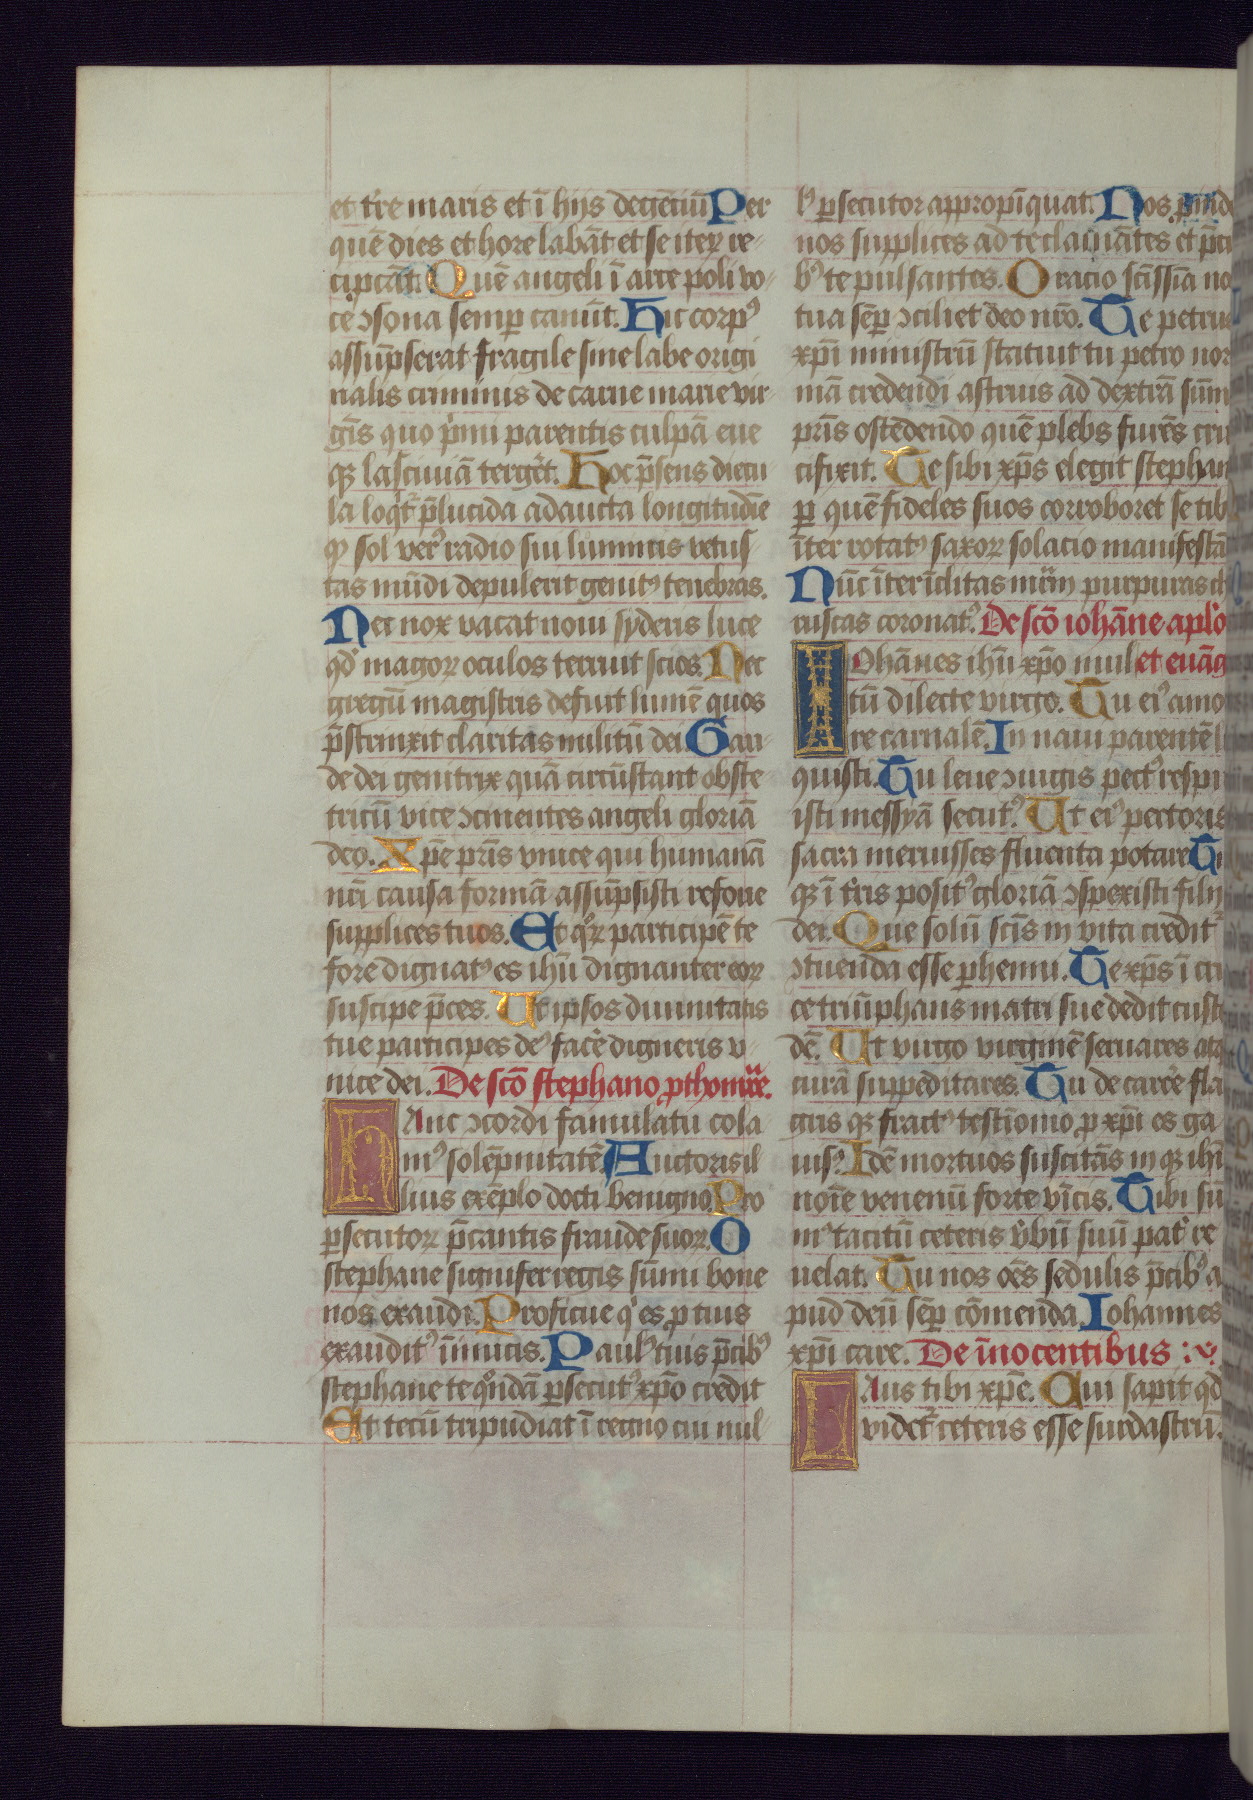 et t're maris et ī hijs degēciū Per
quē dies et hore labāt et se iteꝝ re-
cipicāt. Quē angeli ī arce poli vo-
ce ꝯsona semꝑ canūt. Hic corpꝰ
assūpserat fragile sine labe origi
nalis criminis de carne marie vir-
gīs quo p'mi parentis culpā eue
qꝫ lasciuiā tergēt. Hoc p̄sens diecu
la loqt᷑ p̄lucida adaucta longitudīe
qꝫ sol verꝰ radio sui luminis vetus-
tas mūdi depulerit genitꝰ tenebras.
Nec nox vacat noui syderis luce
qd' magoꝝ oculos terruit scios. Nec
gregū magistris defuit lumē quos
p̄strinxit claritas militū dei. Gau-
de dei genitrix quā circūstant obste-
tricū vice ꝯcinentes angeli gloriā
deo. Xp̄e pr̄is vnice qui humanā
nr̄i causa formā assūpsisti refoue
supplices tuos. Et qꝰꝝ participē te
fore dignatꝰ es ihū dignanter eoꝝ
suscipe p̄ces. Ut ipsos diuinitatis
tue participes deꝰ facē digneris v-
nice dei. De scō stephano ꝓthomr̄e.
HAnc ꝯcordi famulatu cola
mꝰ solēpnitatē Auctoris il
lius exēplo docti benigno. Pro
ꝑsecutoꝝ p̄cantis fraude suoꝝ. O
stephane signifer regis sūmi bone
nos exaudi. Proficue qⁱ es ꝓ tuis
exauditꝰ īimicis. Paulꝰ tuis p̄cibꝰ
stephane te qⁿōdā ꝑsecutꝰ xp̄o credit
Et tecū tripudiat ī regno cui nul-
lꝰ ꝑsecutor appropīquat. Nos ꝓind
nos supplices ad te clamātes et p̄ci
bꝰ te pulsantes. Oracio scīssīa no
tua sēꝑ ꝯciliet deo nrō. Te petrus
xp̄i ministrū statuit tu petro nor
mā credendi astruis ad dextrā sūm
pr̄is ostēdendo quē plebs furēs cru
cifixit. Te sibi xp̄s elegit stephan
ꝑ quē fideles suos corroboret se tib
īter rotatꝰ saxoꝝ solacio manifestā
Nūc īter īclitas mr̄m purpuras co
ruscas coronatꝰ. De scō iohāne aplo
IOhānes ihū xp̄o mul et euāg
tū dilecte virgo. Tu eiꝰ amo
re carnalē. In naui parentē l
quisti. Tu leue ꝯiugis pectꝰ respu
isti messyā secutꝰ. Ut eiꝰ pectoris
sacra meruisses fluenta potare Tu
qꝫ ī tr̄is positꝰ gloriā ꝯspexisti filij
dei. Que solū scīs in vita credit᷑
ꝯtuenda esse ꝑhenni. Te xp̄s ī cru
ce triūphans matri sue dedit custo
dē. Ut virgo virginē seruares atqꝫ
curā suppeditares. Tu de carcē fla
gris qꝫ fractꝰ testīonio ꝓ xp̄i es ga
uisꝰ. Idē mortuos suscitās in qꝫ ihū
noīe venenū forte vīcis. Tibi sū
mꝰ tacitū ceteris v̄bū suū pat' re
uelat. Tu nos oēs sedulis p̄cibꝰ a
pud deū sēꝑ cōmenda. Iohannes
xp̄i care. De īnocentibus :
LAus tibi xp̄e. Cui sapit qd
videt᷑ ceteris esse surdastrū.